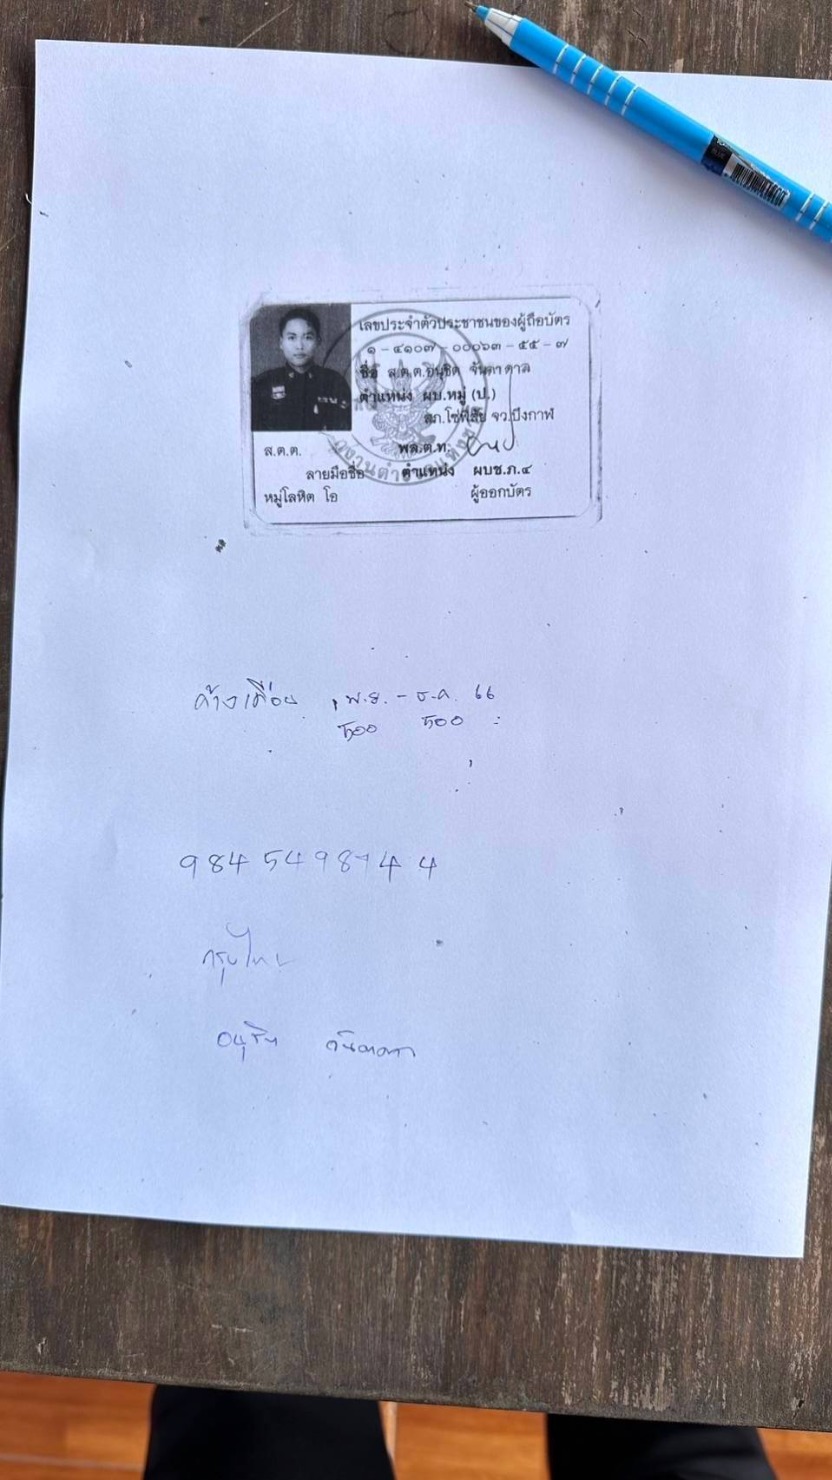 เลขประจำตัวประชาชนของผู้ถือบัตร
๑ - ๔๑๐๗ - ๐๐๐๖๓ - ๕๕ - ๗
ชื่อ ส.ต.ต.อนุชิต จันดาดาล
ตำแหน่ง ผบ.หมู่ (ป.)
สภ.โซ่พิสัย จว.บึงกาฬ
ส.ต.ต. พล.ต.ท.
ลายมือชื่อ ตำแหน่ง ผบช.ภ.๔
หมู่โลหิต โอ ผู้ออกบัตร
ค้างเดือน พ.ย. - ธ.ค. 66
984 5498744
กรุงไทย
อนุชิต